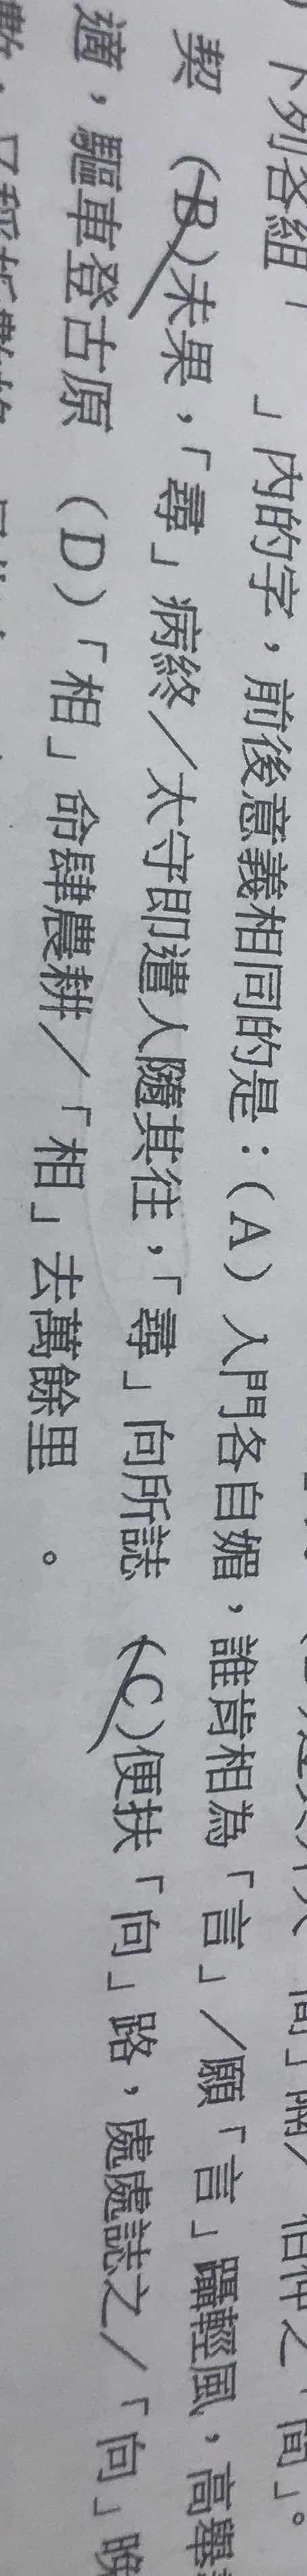 間」隔／伯仲之「間」。
下列各組「　」內的字，前後意義相同的是：（A）入門各自媚，誰肯相為「言」／願「言」躡輕風，高舉
契　（B）未果，「尋」病終／太守即遣人隨其往，「尋」向所誌　（C）便扶「向」路，處處誌之／「向」晚
適，驅車登古原　（D）「相」命肆農耕／「相」去萬餘里　。